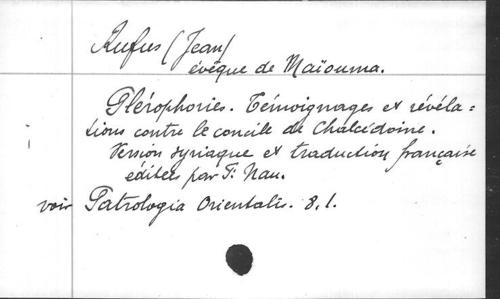 Rufus (Jean)
évêque de Maïouma.
Plérophories. Témoignages et révéla=
tions contre le concile de Chalcédoine.
Version syriaque et traduction française
éditées par F. Nau.
voir Patrologia Orientalis. 8,1.